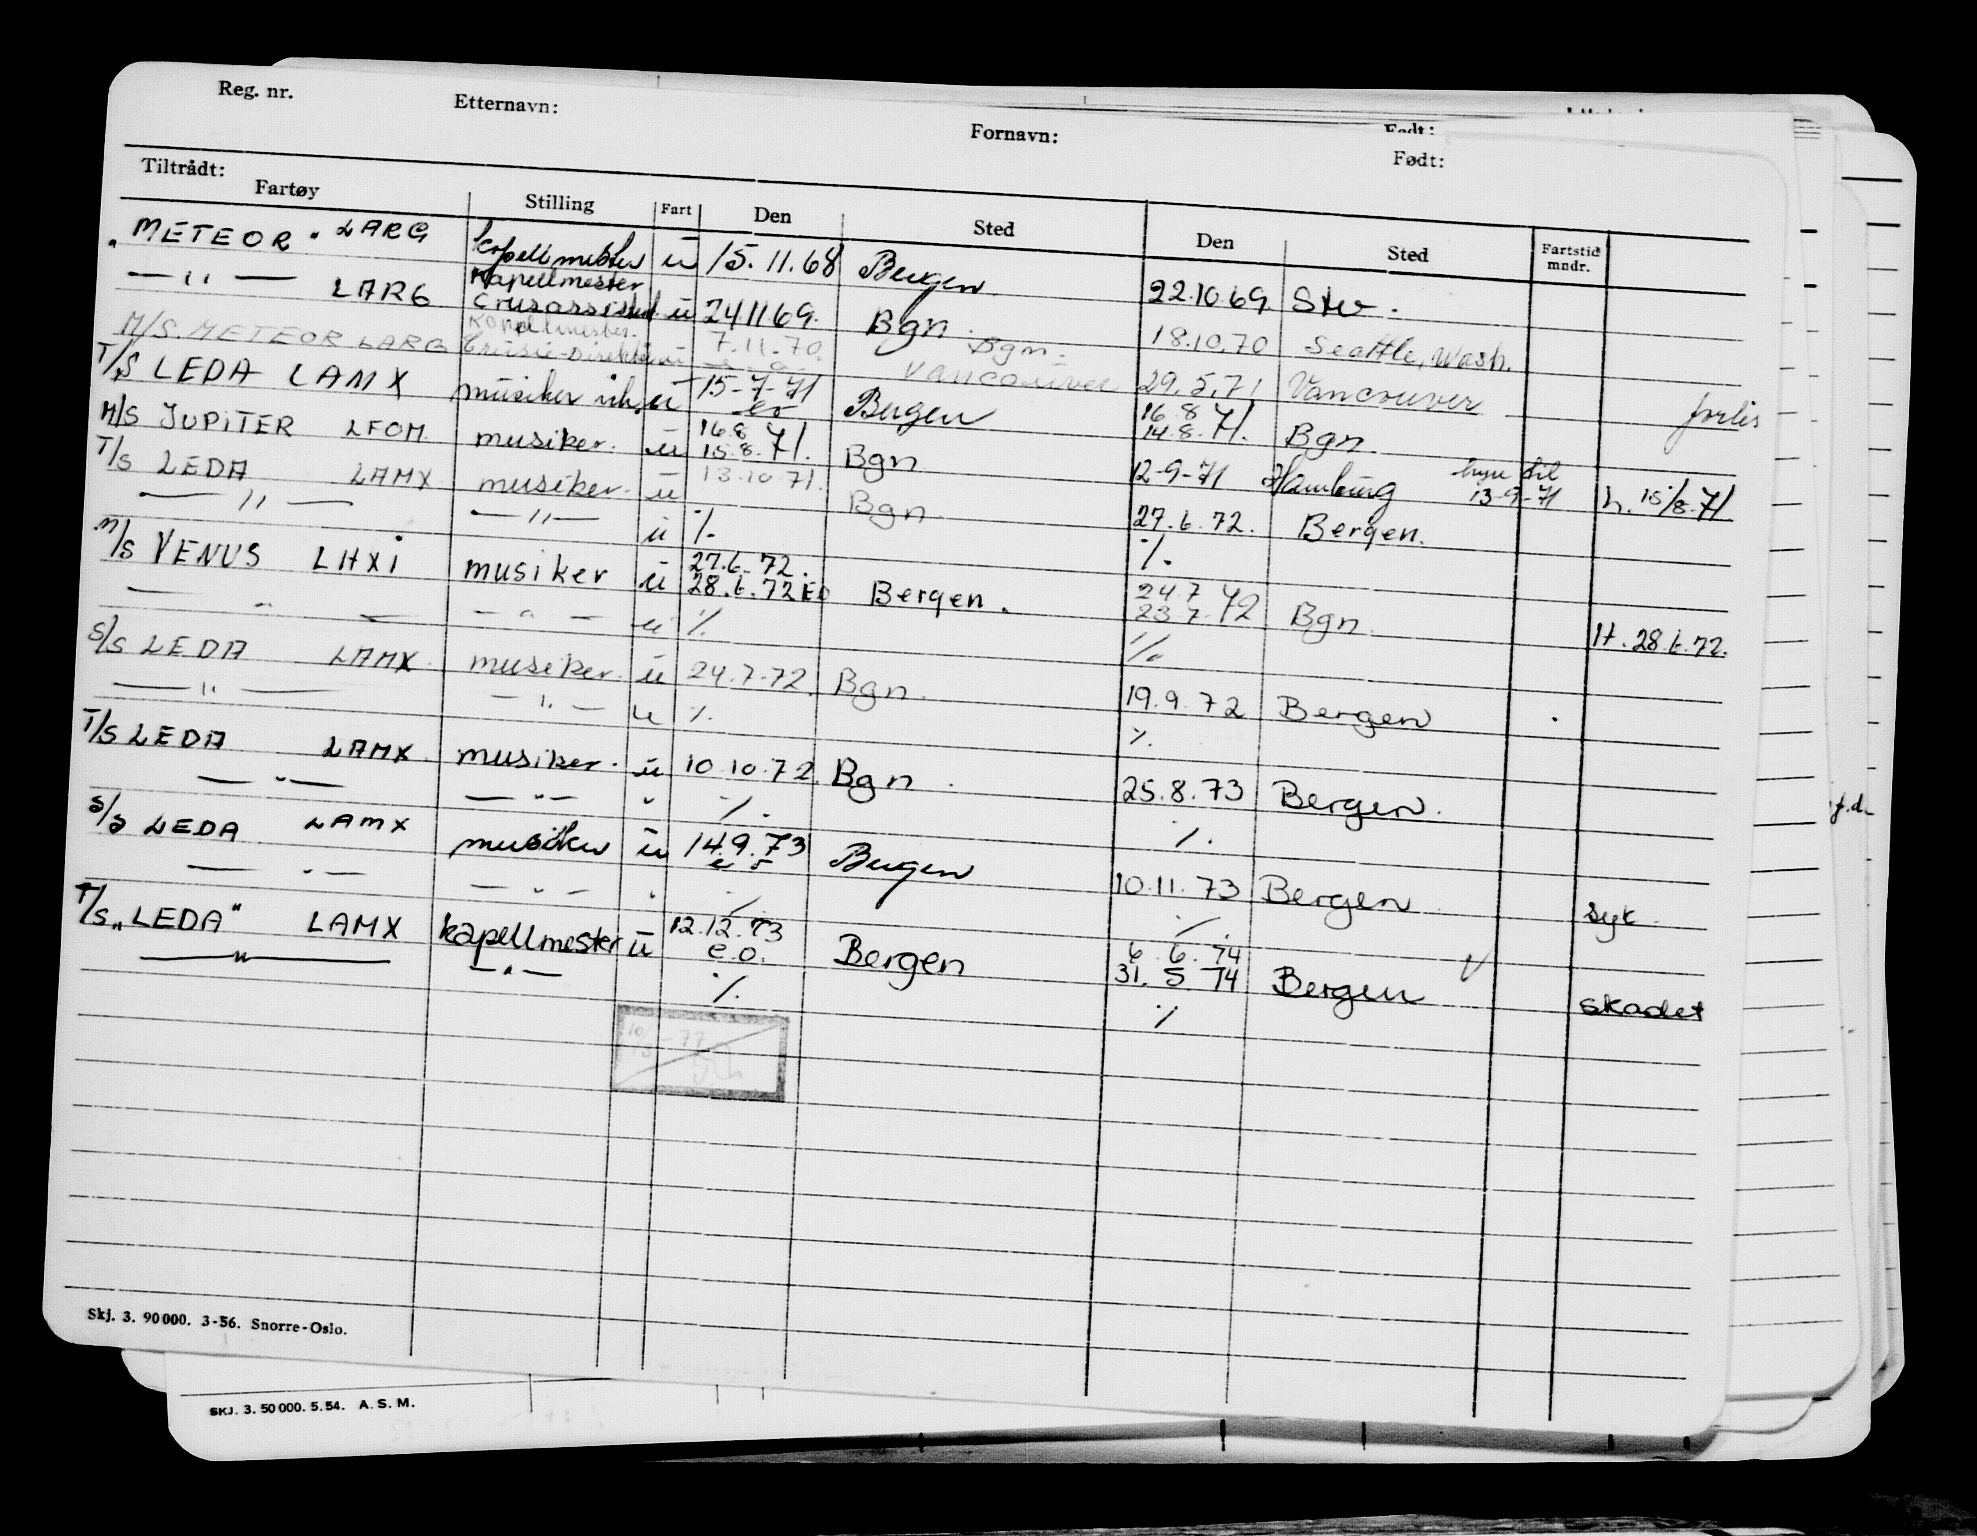 Reg. nr. Etternavn: Fornavn: Født:
Født:
Tiltrådt:
Fartøy Stilling Fart Den Sted Den Sted Fartstid mndr.
"METEOR" LARG kapellmester u 15.11.68 Bergen 22.10.69 Stv.
— " — LARG Kapellmester u 24.11.69. Bgn. 18.10.70 Seattle, Wash.
M/S. METEOR LARG Kapellmester 7.11.70. Bgn. Vancouver 29.5.71 Vancouver forlis
T/S LEDA LAMX musiker u 15-7-71 eo Bergen 16.8 14.8.71. Bgn.
M/S JUPITER LFOM musiker. u 16.8 15.8.71. Bgn 12-9-71 Hamburg hyre til 13-9-71 h. 15/8-71
T/S LEDA LAMX musiker. u 13.10.71. Bgn. 27.6.72. Bergen.
— " — — " — u %. %.
M/S VENUS LHXI musiker u 27.6.72. 28.6.72 EO Bergen. 24.7 23.7.72 Bgn. H. 28.6.72.
— " — — " — u %. %.
S/S LEDA LAMX. musiker. u 24.7.72. Bgn. 19.9.72 Bergen
— " — — " — u %. %.
T/S LEDA LAMX. musiker. u 10.10.72 Bgn. 25.8.73 Bergen.
— " — — " — " %. %.
S/S LEDA LAMX musiker u 14.9.73 eo Bergen 10.11.73 Bergen syk.
— " — — " — " %. %.
T/S "LEDA" LAMX kapellmester u 12.12.73 e.o. Bergen 6.6.74 31.5 74 Bergen skadet
— " — — " — %. %
Skj. 3. 90 000. 3-56. Snorre-Oslo.
SKJ. 3. 50 000. 5.54. A. S. M.